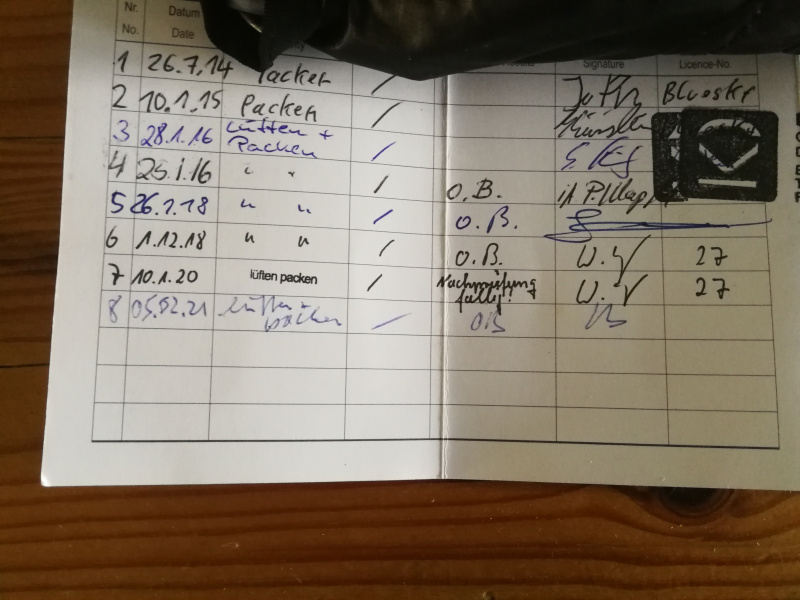 Nr. Datum
No. Date Signature Licence-No.
1 26.7.14 Packen / Bluesky
2 10.1.15 Packen /
3 28.1.16 Lüften + Packen /
4 25.1.16 " " / O.B.
5 26.1.18 " " / O.B.
6 1.12.18 " " / O.B. W. 27
7 10.1.20 lüften packen / Nachprüfung fällig! W. 27
8 05.02.21 lüften + packen / OB